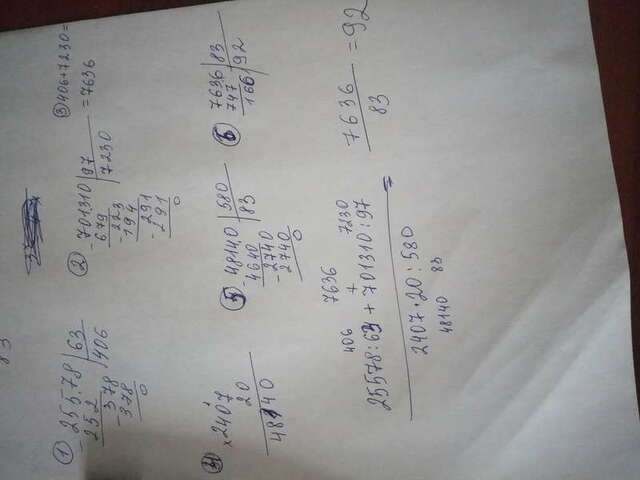 ① - 25578 | 63
252 | 406
- 378
378
0
② - 701310 | 97
679 | 7230
- 223
194
- 291
291
0
③ 406+7230=
=7636
④ ×2407
20
48140
⑤ - 48140 | 580
4640 | 83
- 2740
2740
0
⑥ 7636 | 83
747 | 92
166
406 7636 7230
+
25578:63 + 701310:97 =
2407·20:580
48140 83
7636 = 92
83